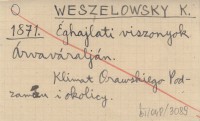 WESZELOWSKY K.
1871. Éghajlati viszonyok
Árvaváralján.
Klimat Orawskiego Pod-
zamku i okolicy.